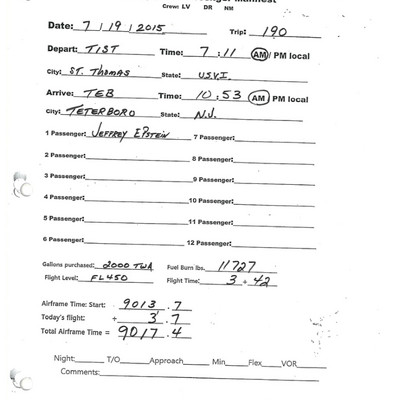 Crew: LV DR NM
Date: 7 / 19 / 2015 Trip: 190
Depart: TIST Time: 7 : 11 AM / PM local
City: ST. THOMAS State: U.S.V.I.
Arrive: TEB Time: 10 : 53 AM PM local
City: TETERBORO State: N.J.
1 Passenger: JEFFREY EPSTEIN 7 Passenger:
2 Passenger: 8 Passenger:
3 Passenger: 9 Passenger:
4 Passenger: 10 Passenger:
5 Passenger: 11 Passenger:
6 Passenger: 12 Passenger:
Gallons purchased: 2000 TWA Fuel Burn lbs. 11727
Flight Level: FL450 Flight Time: 3 + 42
Airframe Time: Start: 9013 . 7
Today's flight: + 3 . 7
Total Airframe Time = 9017 . 4
Night: T/O Approach Min Flex VOR
Comments: